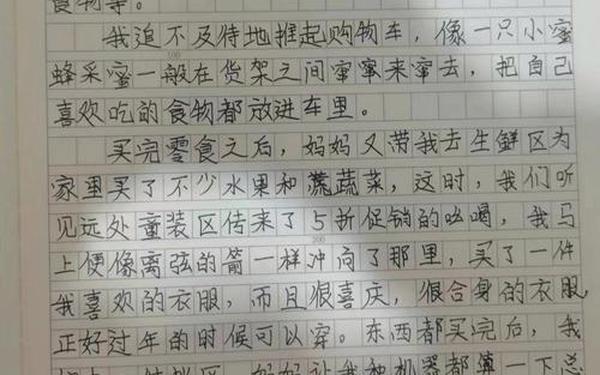 食物等。
我追不及待地推起购物车，像一只小蜜
100
蜂采蜜一般在货架之间窜窜来窜去，把自己
喜欢吃的食物都放进车里。
买完零食之后，妈妈又带我去生鲜区为
家里买了不少水果和蔬菜，这时，我们听
见远处童装区传来了5折促销的吆喝，我马
200
上便像离弦的箭一样冲向了那里，买了一件
我喜欢的衣服，而且很喜庆，很合身的衣服
正好过年的时候可以穿。东西都买完后，我
妈妈让我和机器都傅一下总